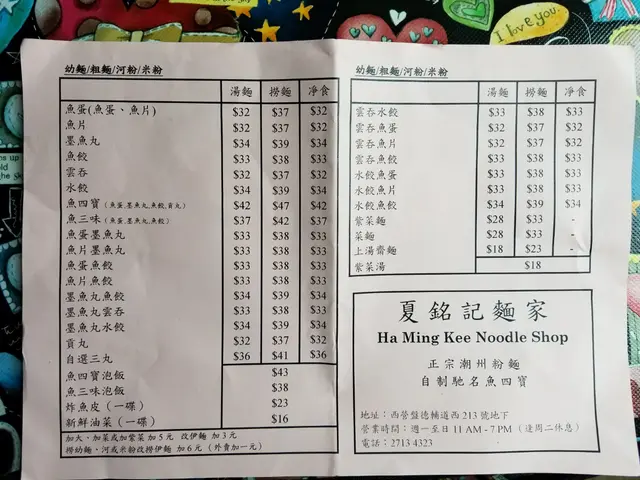 幼麵/粗麵/河粉/米粉
湯麵 撈麵 凈食
魚蛋(魚蛋、魚片) $32 $37 $32
魚片 $32 $37 $32
墨魚丸 $34 $39 $34
魚餃 $33 $38 $33
雲吞 $32 $37 $32
水餃 $34 $39 $34
魚四寶(魚蛋,墨魚丸,魚餃,貢丸) $42 $47 $42
魚三味(魚蛋,墨魚丸,魚餃) $37 $42 $37
魚蛋墨魚丸 $33 $38 $33
魚片墨魚丸 $33 $38 $33
魚蛋魚餃 $33 $38 $33
魚片魚餃 $33 $38 $33
墨魚丸魚餃 $34 $39 $34
墨魚丸雲吞 $33 $38 $33
墨魚丸水餃 $34 $39 $34
貢丸 $32 $37 $32
自選三丸 $36 $41 $36
魚四寶泡飯 $43
魚三味泡飯 $38
炸魚皮(一碟) $23
新鮮油菜(一碟) $16
加大、加菜或加紫菜加5元 改伊麵 加3元
撈幼麵、河或米粉改撈伊麵 加6元 (外賣加一元)
幼麵/粗麵/河粉/米粉
湯麵 撈麵 凈食
雲吞水餃 $33 $38 $33
雲吞魚蛋 $32 $37 $32
雲吞魚片 $32 $37 $32
雲吞魚餃 $33 $38 $33
水餃魚蛋 $33 $38 $33
水餃魚片 $33 $38 $33
水餃魚餃 $34 $39 $34
紫菜麵 $28 $33 -
菜麵 $28 $33 -
上湯齋麵 $18 $23 -
紫菜湯 $18
夏銘記麵家
Ha Ming Kee Noodle Shop
正宗潮州粉麵
自制馳名魚四寶
地址：西營盤德輔道西213號地下
營業時間：週一至日 11 AM - 7 PM (逢周二休息)
電話：2713 4323
I love you.